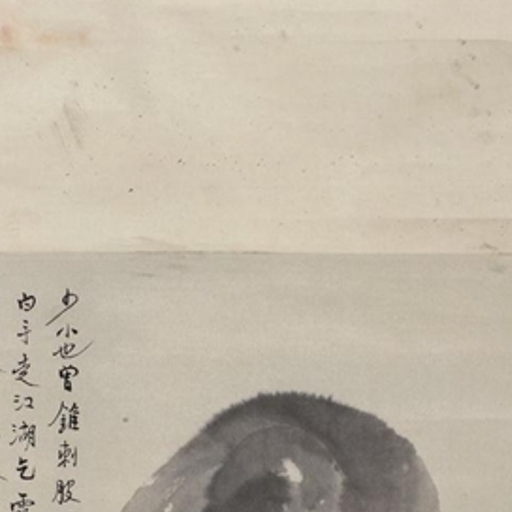 少小也曾錐刺股
白手走江湖乞